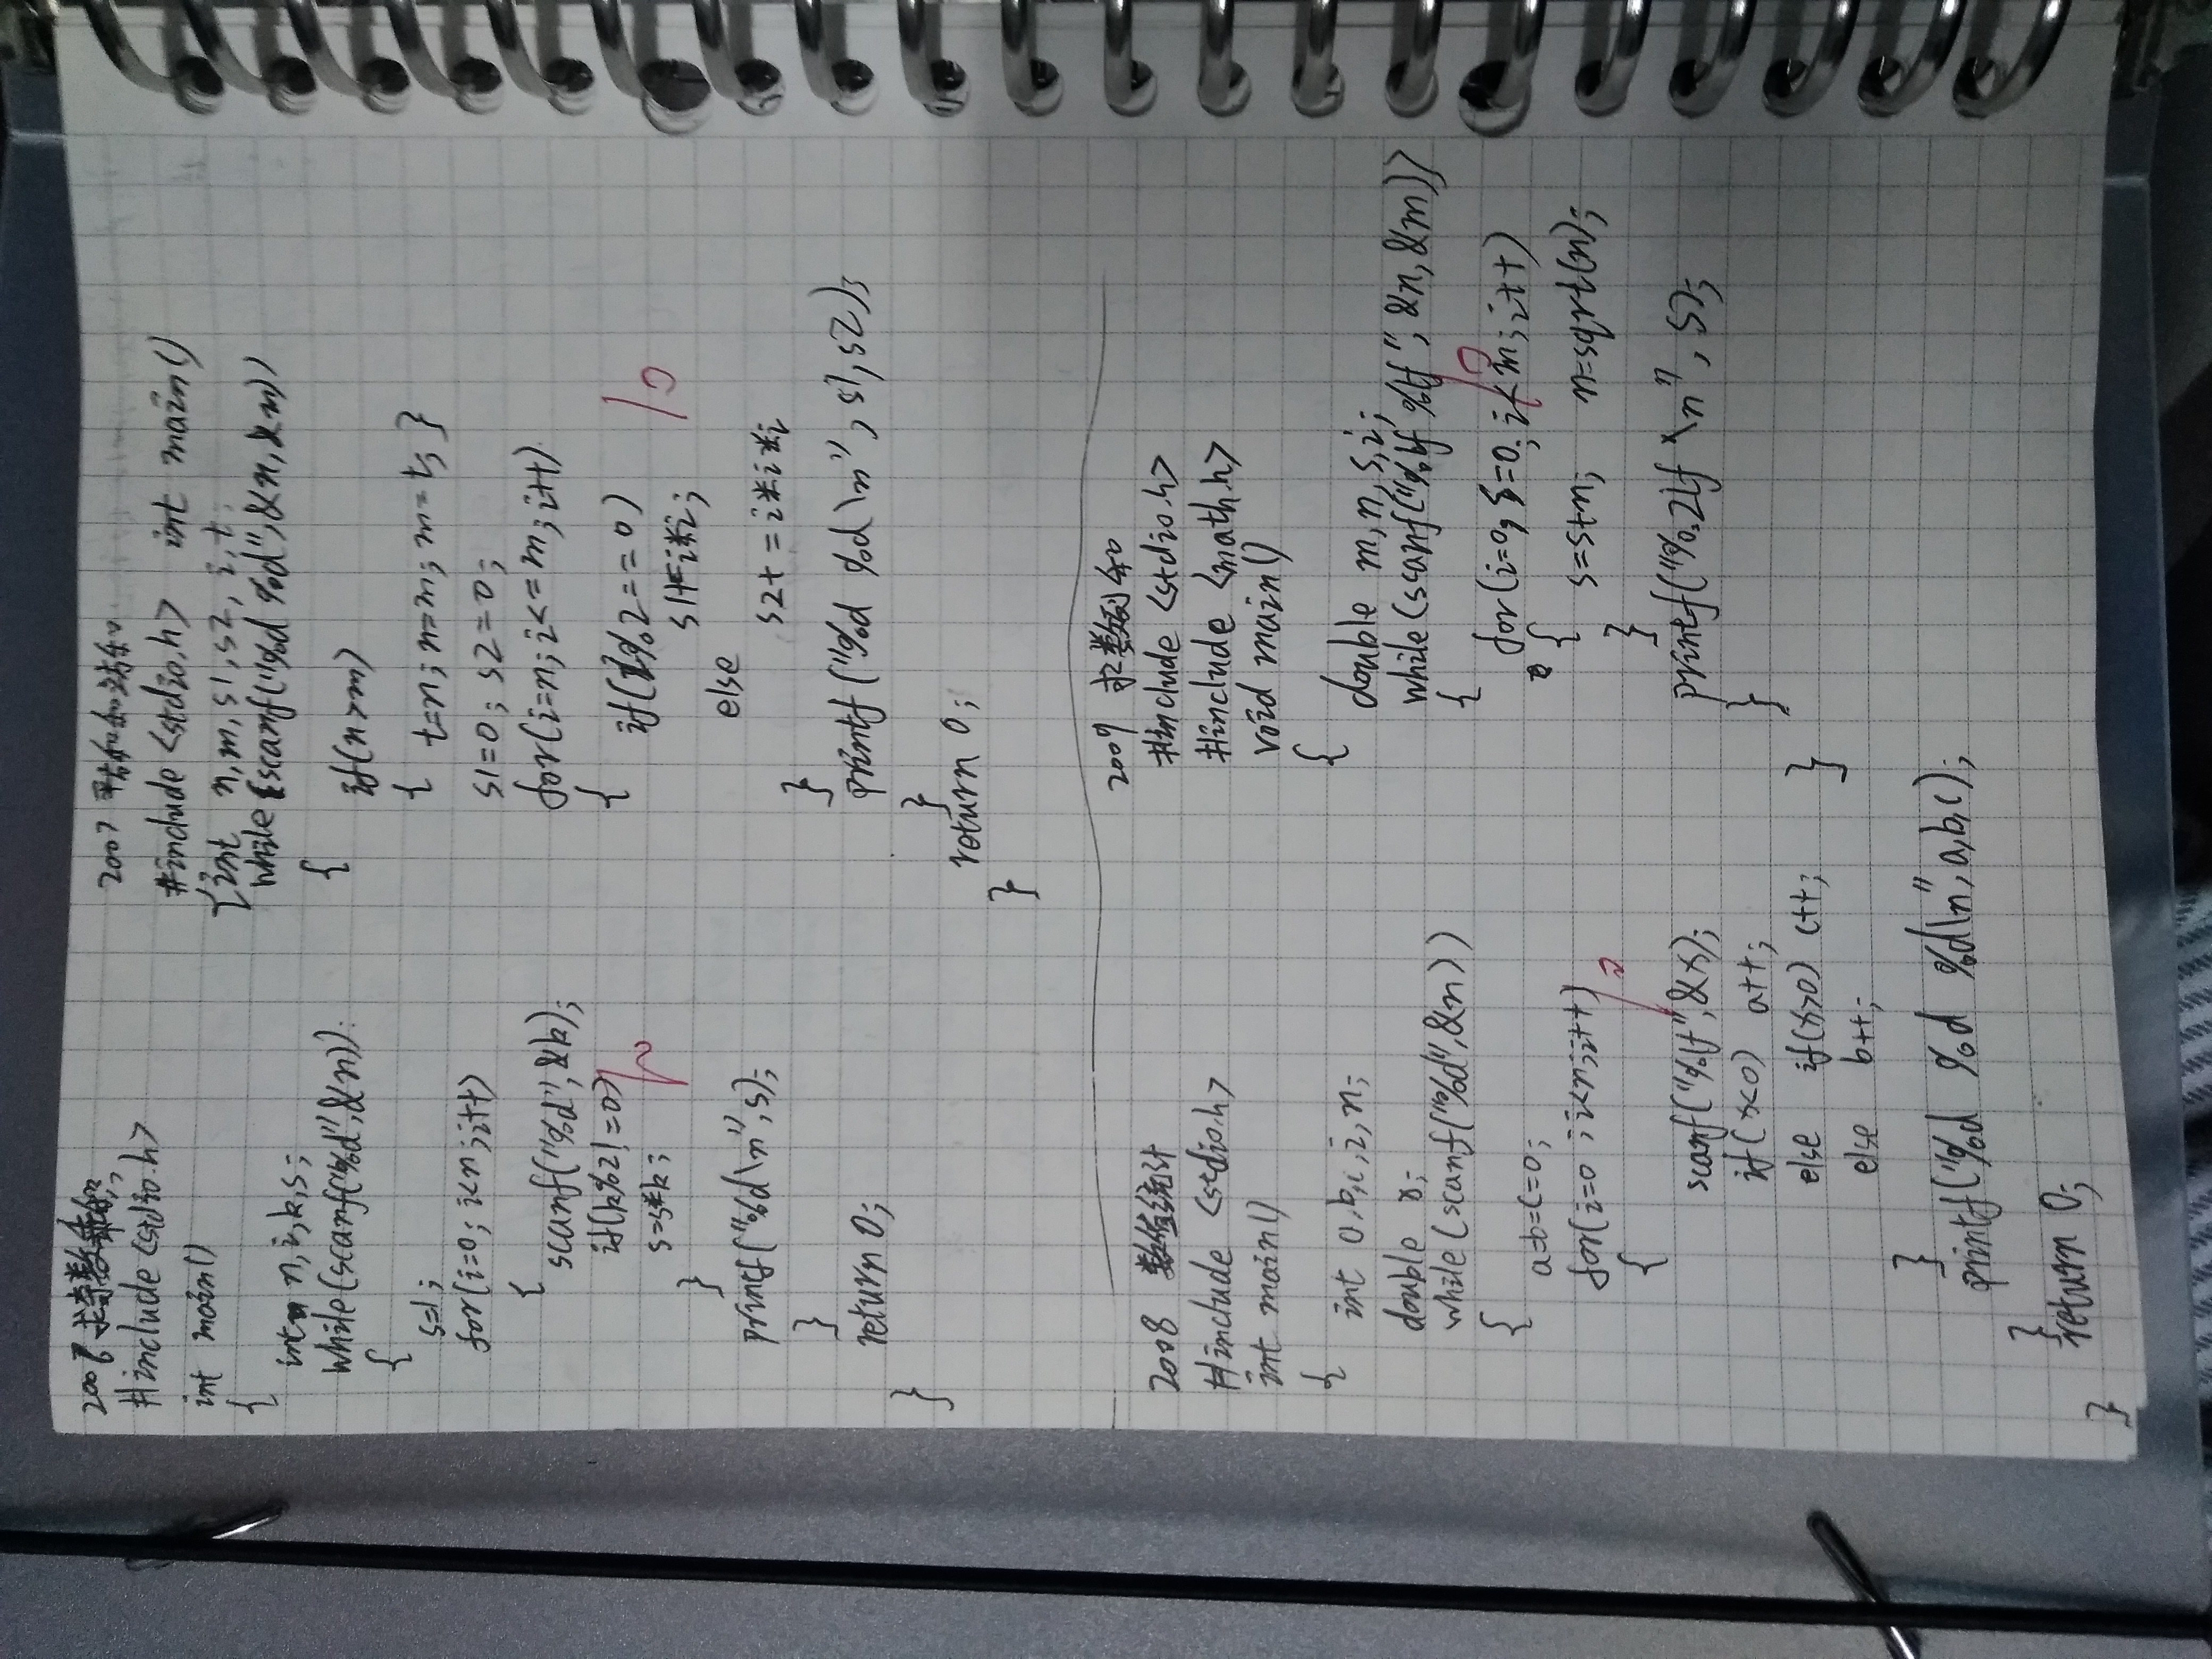 2006 求奇数乘积
#include <stdio.h>
int main()
{
int n,i,k,s;
while(scanf("%d",&n))
{
s=1;
for(i=0;i<n;i++)
{
scanf("%d",&k);
if(k%2!=0)
s=s*k;
}
printf("%d\n",s);
}
return 0;
}
2007 平方和和立方和
#include <stdio.h> int main()
{int n,m,s1,s2,i,t;
while(scanf("%d %d",&n,&m))
{
if(n>m)
{ t=n; n=m; m=t; }
s1=0; s2=0;
for(i=n;i<=m;i++)
{
if(i%2==0)
s1+=i*i;
else
s2+=i*i*i
}
printf("%d %d\n",s1,s2);
}
return 0;
}
2008 数值统计
#include <stdio.h>
int main()
{
int a,b,c,i,n;
double x;
while(scanf("%d",&n))
{
a=b=c=0;
for(i=0;i<n;i++)
{
scanf("%lf",&x);
if(x<0) a++;
else if(x>0) c++;
else b++;
}
printf("%d %d %d\n",a,b,c);
}
return 0;
}
2009 求数列和
#include <stdio.h>
#include <math.h>
void main()
{
double m,n,s,i;
while(scanf("%lf %lf",&n,&m))
{
for(i=0,s=0;i<m;i++)
{ s=s+n; n=sqrt(n);
}
printf("%0.2lf\n",s);
}
}